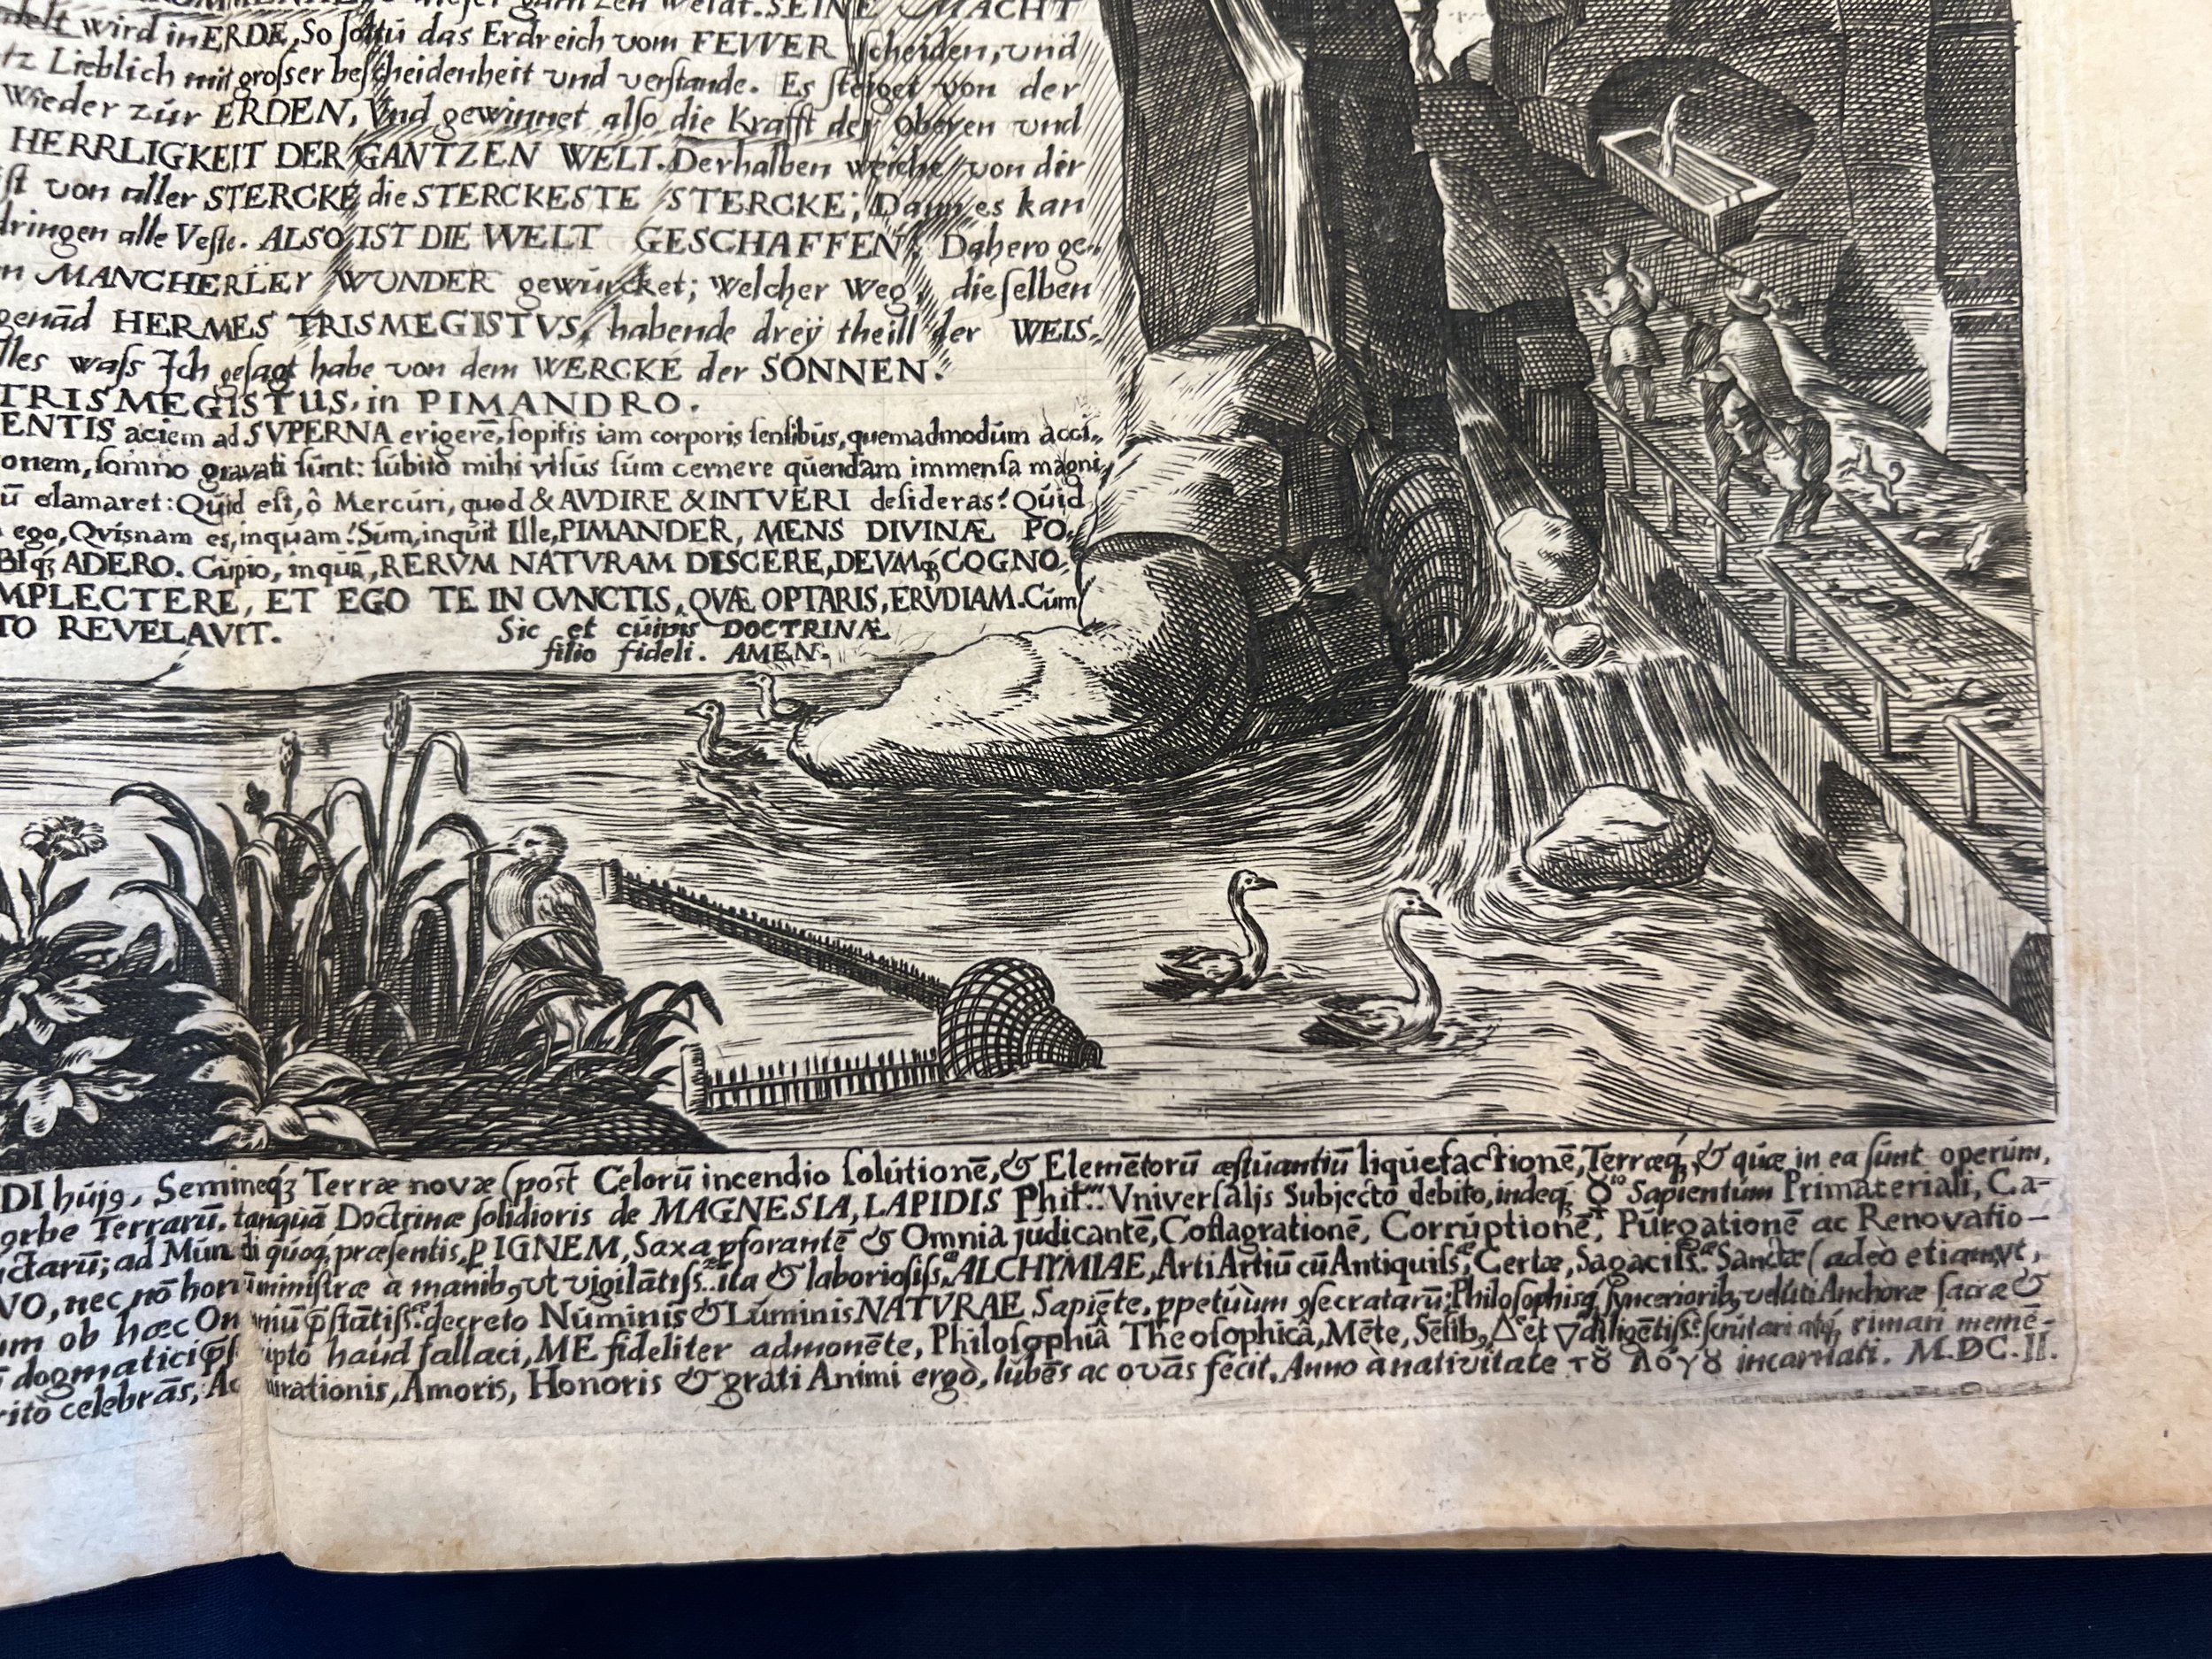 dieser gantzen Weldt. SEINE MACHT
delt wird in ERDE, So soltu das Erdreich vom FEVVER scheiden, und
Lieblich mit grosser bescheidenheit und verstande. Es steiget von der
wieder zúr ERDEN, Vnd gewinnet also die Krafft der oberen und
HERRLIGKEIT DER GANTZEN WELT. Derhalben weiche von dir
ist von aller STERCKE die STERCKESTE STERCKE; Dann es kan
dringen alle Veste. ALSO IST DIE WELT GESCHAFFEN. Dahero ge-
MANCHERLEY WUNDER gewúrcket; welcher Weg, dieselben
genād HERMES TRISMEGISTVS, habende dreÿ theill der WEIS-
lles wass Ich gesagt habe von dem WERCKE der SONNEN.
TRISMEGISTUS, in PIMANDRO.
ENTIS aciem ad SVPERNA erigerē, sopitis iam corporis sensibús, quemadmodúm acci-
onem, somno gravati súnt: súbitò mihi visús súm cernere qúendam immensa magni-
ū clamaret: Qúid est, ô Mercúri, quod & AVDIRE & INTVERI desideras? Qúid
ego, Qvisnam es, inquam? Súm, inqúit Ille, PIMANDER, MENS DIVINÆ PO-
BIq́ꝫ ADERO. Cúpio, inqúā, RERVM NATVRAM DISCERE, DEVMq́ꝫ COGNO-
MPLECTERE, ET EGO TE IN CVNCTIS, QVÆ OPTARIS, ERVDIAM. Cúm
TO REVELAVIT.
Sic et cúivis DOCTRINÆ
filio fideli. AMEN.
DI húj9, Semineq́ꝫ Terræ novæ (post Celorū incendio solútionē, & Elemētorū æstúantiū liqúefactionē, Terræq́ꝫ, & qúæ in ea súnt operúm,
orbe Terrarū, tanqúā Doctrinæ solidioris de MAGNESIA, LAPIDIS Phil. Vniversalis Subjecto debito, indeq́ꝫ ☿io Sapientúm Primateriali, Ca-
ctarū; ad Mundi qúoq́ꝫ præsentis, ꝑ IGNEM, Saxa ꝑforantē & Omnia júdicantē, Coflagrationē, Corrúptionē, Púrgationē ac Renovatio-
VO, nec nō horū ministræ à manib9, ut vigilātiss. ita & laboriosiss. ALCHYMIAE, Arti Artiū cū Antiquiss. Certæ, Sagaciss. Sanctæ (adeò etiam, vt,
um ob hæc Omniū p̄stātiss. decreto Núminis & Lúminis NATVRAE Sapiēte, ꝑpetúùm ꝯsecratarū; Philosophisq́ꝫ syncerioribꝫ, velúti Anchoræ sacræ &
dogmatici haúd fallaci, ME fideliter admonēte, Philosophiâ Theosophicâ, Mēte, Sēsib9, △e et ▽ diligētiss. scrútari atq́ꝫ rimari memē-
ritò celebrās, Admirationis, Amoris, Honoris & grati Animi ergò, lúbēs ac ovās fecit, Anno à nativitate τȣ͂ λόγȣ incarnati. M.DC.II.